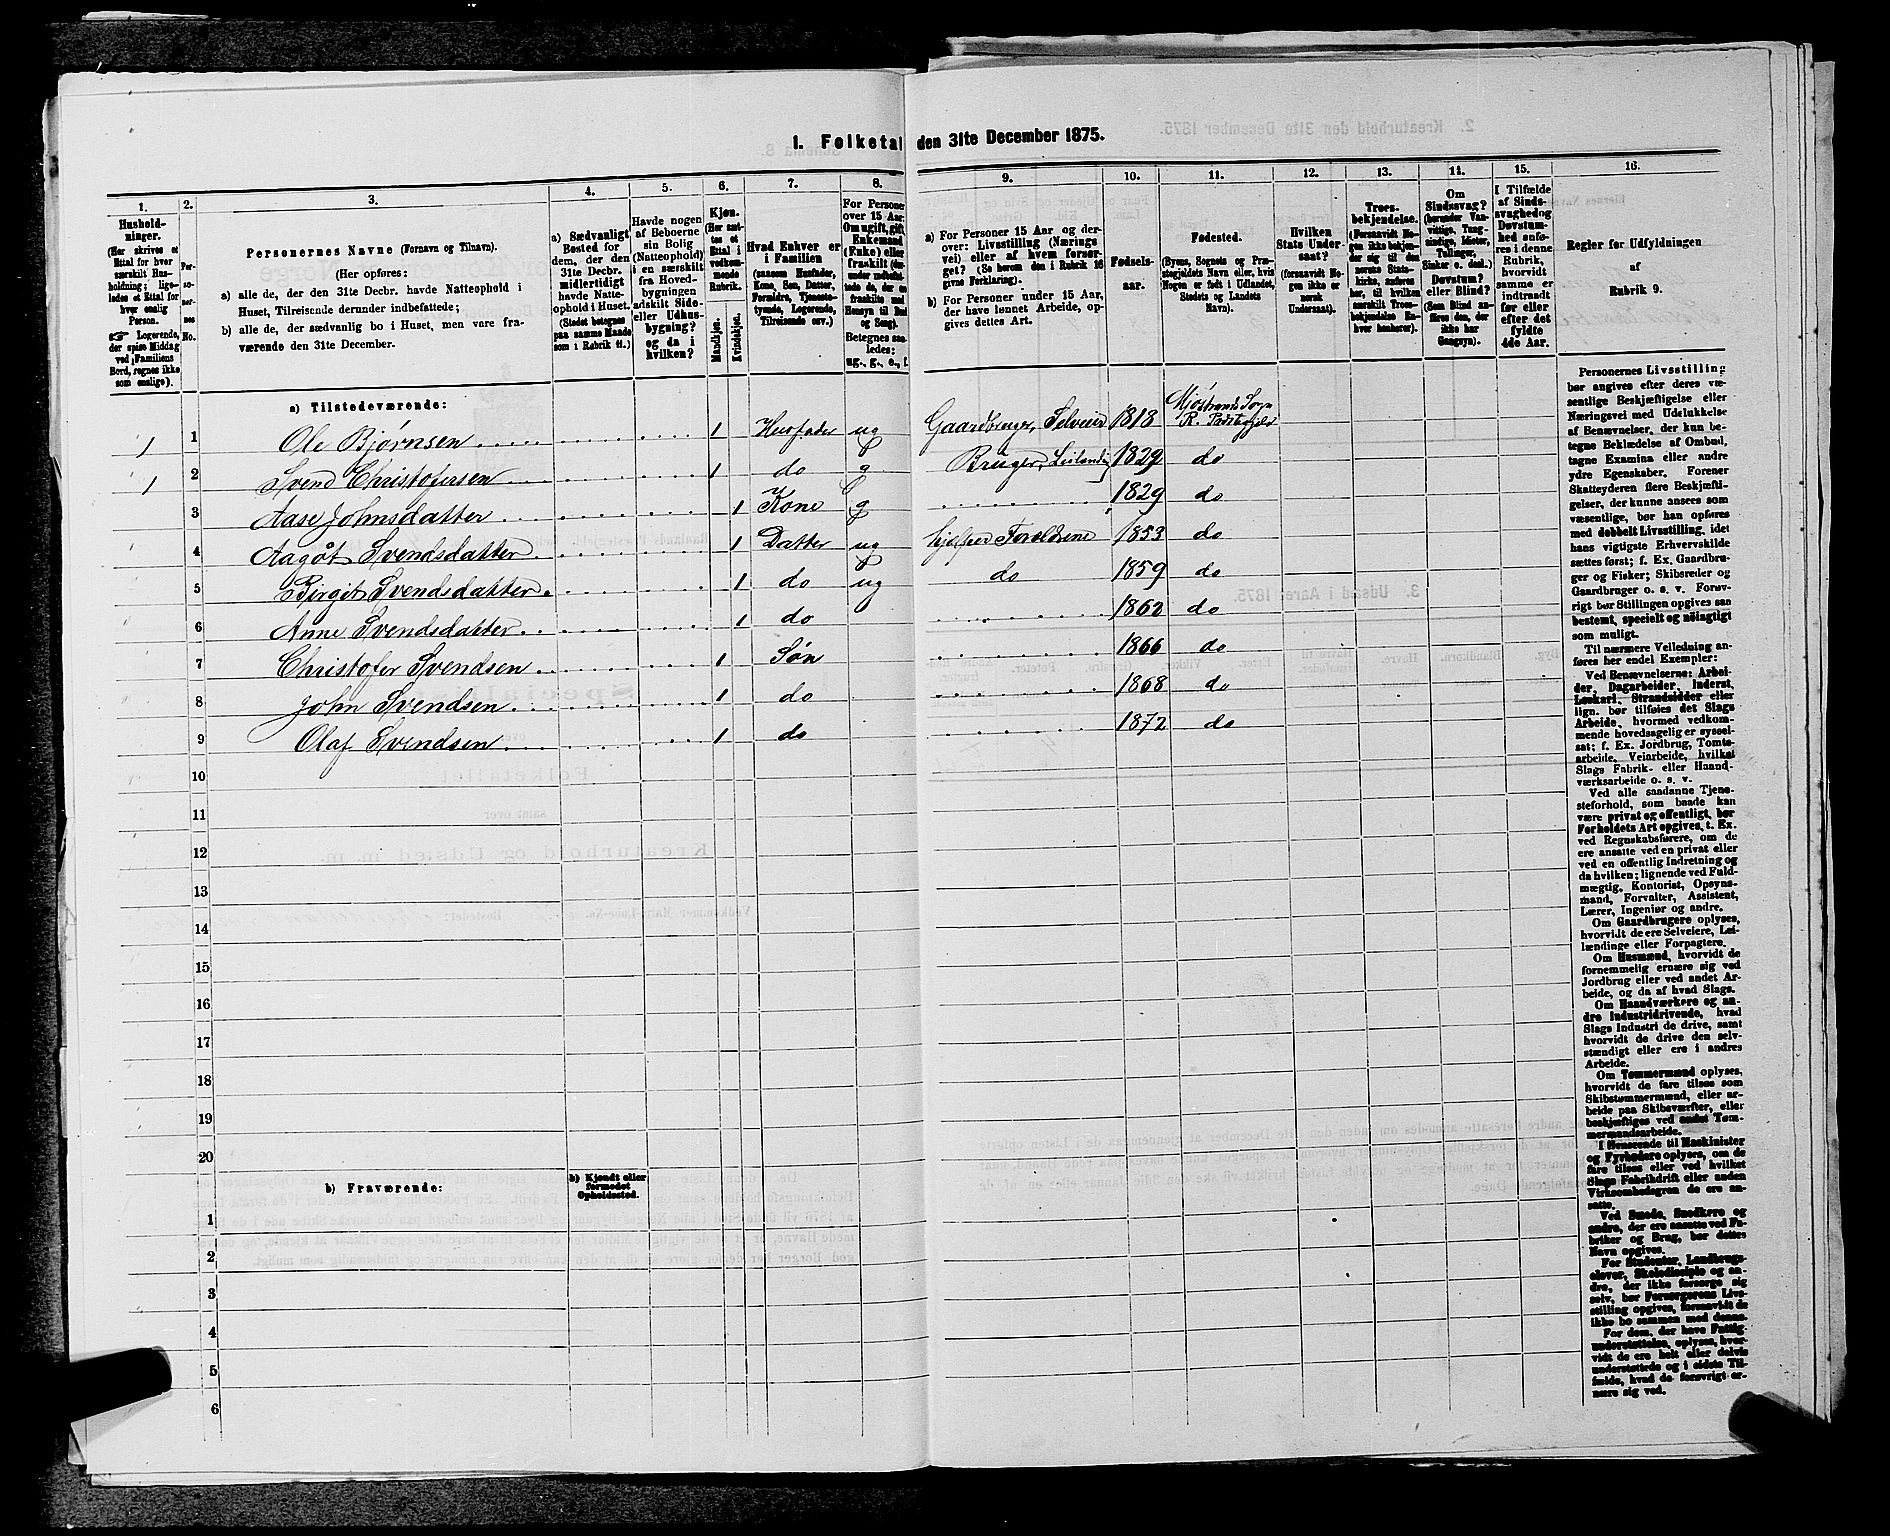 1. Folketal den 31te December 1875.
1.
2.
3.
4.
5.
6.
7.
8.
9.
10.
11.
12.
13.
14.
15.
16.
Hushold-
ninger.
(Her skrives et
Ettal for hver
særskilt Hus-
holdning; lige-
ledes et Ettal for
hver enslig
Person.
☞ Logerende,
der spise Middag
ved Familiens
Bord, regnes ikke
som enslige).
Per-
so-
ner-
nes
No.
Personernes Navne (Fornavn og Tilnavn).
(Her opføres:
a) alle de, der den 31te Decbr. havde Natteophold i
Huset, Tilreisende derunder indbefattede;
b) alle de, der sædvanlig bo i Huset, men vare fra-
værende den 31te December.
a) Sædvanligt
Bosted for
dem, der den
31te Decbr.
midlertidigt
havde Natte-
ophold i Huset.
(Stedet betegnes
paa samme Maade
som i Rubrik 11.)
Havde nogen
af Beboerne
sin Bolig
(Natteophold)
i en særskilt
fra Hoved-
bygningen
adskilt Side-
eller Udhus-
bygning?
og da i
hvilken?
Kjøn.
(Her sæt-
tes et
Ettal i
vedkom-
mende
Rubrik.
Mandkjøn.
Kvindekjøn.
Hvad Enhver er
i Familien
(saasom Husfader,
Kone, Søn, Datter,
Forældre, Tjeneste-
tyende, Logerende,
Tilreisende osv.)
For Personer
over 15 Aar:
Om ugift, gift,
Enkemand
(Enke) eller
fraskilt
Betegnes saa-
ledes:
ug., g., e., f.
a) For Personer 15 Aar og der-
over: Livsstilling (Nærings
vei) eller af hvem forsør-
get? (Se herom den i Rubrik 16
givne Forklaring).
b) For Personer under 15 Aar,
der have lønnet Arbeide, op-
gives dettes Art.
Fødsels-
aar.
Fødested.
(Byens, Sognets og Præ-
stegjeldets Navn eller, hvis
Nogen er født i Udlandet,
Stedets og Landets
Navn).
Hvilken
Stats Under-
saat?
(forsaavidt No-
gen ikke er
norsk
Undersaat).
Troes-
bekjendelse.
(Forsaavidt No-
gen ikke bekjen-
der sig til den
norske Stats-
kirke, anføres
her, til hvilken
særskilt Troes-
bekjendelse En-
hver henhører).
Om
Sindssvag?
(herunder Van-
vittige, Tung-
sindige, Idioter,
Tullinger,
Sinker o. desl.)
Døvstum?
eller Blind?
(Som Blind an-
føres den, der
ikke har
Gangsyn).
I Tilfælde
af Sinds-
svaghed og
Døvstum-
hed anfø-
res i denne
Rubrik,
hvorvidt
samme er
indtraadt
før eller
efter det
fyldte
4de Aar.
Regler før Udfyldningen
af
Rubrik 9.
a) Tilstedeværende:
1 1 Ole Bjørnsen 1 Husfader ug Gaardbruger, Selveier 1818 Mjøstrands Sogn
1 2 Svend Christofersen 1 do g Bruger, Leilending 1829 do
3 Aase Johnsdatter 1 Kone g 1829 do
4 Aagót Svendsdatter 1 Datter ug hjelper Foreldrene 1853 do
5 Birgit Svendsdatter 1 do ug do 1859 do
6 Anne Svendsdatter 1 do 1862 do
7 Christofer Svendsen 1 Søn 1866 do
8 John Svendsen 1 do 1868 do
9 Olaf Svendsen 1 do 1872 do
10
11
12
13
14
15
16
17
18
19
20
b) Fraværende:
b) Kjendt eller
formodet
Opholdssted.
1
2
3
4
5
6
Personernes Livsstilling
bør angives efter deres væ-
sentlige Beskjæftigelse eller
Næringsvei med Udelukkelse
af Benævnelser, der kun be-
tegne Beklædelse af Ombud,
tagne Examina eller andre
ydre Egenskaber. Forener
Skatteyderen flere Beskjæfti-
gelser, der kunne ansees som
væsentlige, bør han opføres
med dobbelt Livsstilling, idet
hans vigtigste Erhvervskilde
sættes først; f. Ex. Gaardbru-
ger og Fisker; Skibsreder og
Gaardbruger o. s. v. Forøv-
rigt bør Stillingen opgives saa
bestemt, specielt og nøiagtigt
som muligt.
Til nærmere Veiledning an-
føres her endel Exempler:
Ved Benævnelserne: Arbei-
der, Dagarbeider, Inderst,
Løskarl, Strandsidder eller
lign. bør tilføies det Slags
Arbeide, hvormed vedkom-
mende hovedsagelig er syssel-
sat; f. Ex. Jordbrug, Tomte-
arbeide, Veiarbeide, hvilket
Slags Fabrik- eller Haand-
værksarbeide o. s. v.
Ved alle saadanne Tjene-
steforhold, som baade kan
være privat og offentligt, bør
Forholdets Art opgives, t. Ex.
ved Regnskabsførere, om de
ere ansatte ved en privat eller
ved en offentlig Indretning og
da hvilken; lignende ved Fuld-
mægtig, Kontorist, Opsyns-
mand, Forvalter, Assistent,
Lærer, Ingeniør og andre.
Om Gaardbrugere oplyses,
hvorvidt de ere Selveiere, Lei-
lændinge eller Forpagtere.
Om Husmænd, hvorvidt de
fornemmelig ernære sig ved
Jordbrug eller ved andet Ar-
beide, og da af hvad Slags.
Om Haandværkere og an-
dre Industridrivende, hvad
Slags Industri de drive, samt
hvorvidt de drive den selv-
stændigt eller ere i andres
Arbeide.
Om Tømmermænd oplyses,
hvorvidt de fare tilsøs som
Skibstømmermænd, eller ar-
beide paa Skibsværfter, eller
beskjæftiges ved andet Tøm-
mermandsarbeide.
I Henseende til Maskinister
og Fyrbødere oplyses, om de
fare tilsøs eller ved hvilket
Slags Fabrikdrift eller anden
Virksomhedsgren de ere an-
satte.
Ved Smede, Snedkere og
andre, der ere ansatte ved Fa-
briker og Brug, bør dettes
Navn opgives.
For Studenter, Landbrugs-
elever, Skoledisciple og an-
dre, der ikke forsørge sig
selv, bør Forsørgerens Livs-
stilling opgives, forsaavidt de
ikke bo sammen med denne.
For dem, der have Fattig-
understøttelse, oplyses, hvor-
vidt de ere helt eller delvis
understøttede og i sidste Til-
fælde, hvad de forøvrigt er-
nære sig ved.